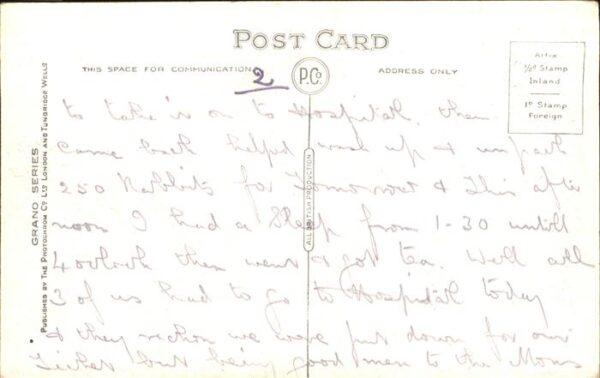 POST CARD
THIS SPACE FOR COMMUNICATION
2
P.Co
ADDRESS ONLY
Affix
½d Stamp
Inland
1d Stamp
Foreign
GRANO SERIES
PUBLISHED BY THE PHOTOCHROM Co LTD LONDON AND TUNBRIDGE WELLS
ALL BRITISH PRODUCTION
to take us on to Hospital. then
came back helped wash up & unpack
250 Rabbits for Tomorrow & This after
noon I had a Sleep from 1-30 untill
4 oclock then went & got tea. Well all
3 of us had to go to Hospital today
& they reckon we were put down for our
Ticket but being good men to the